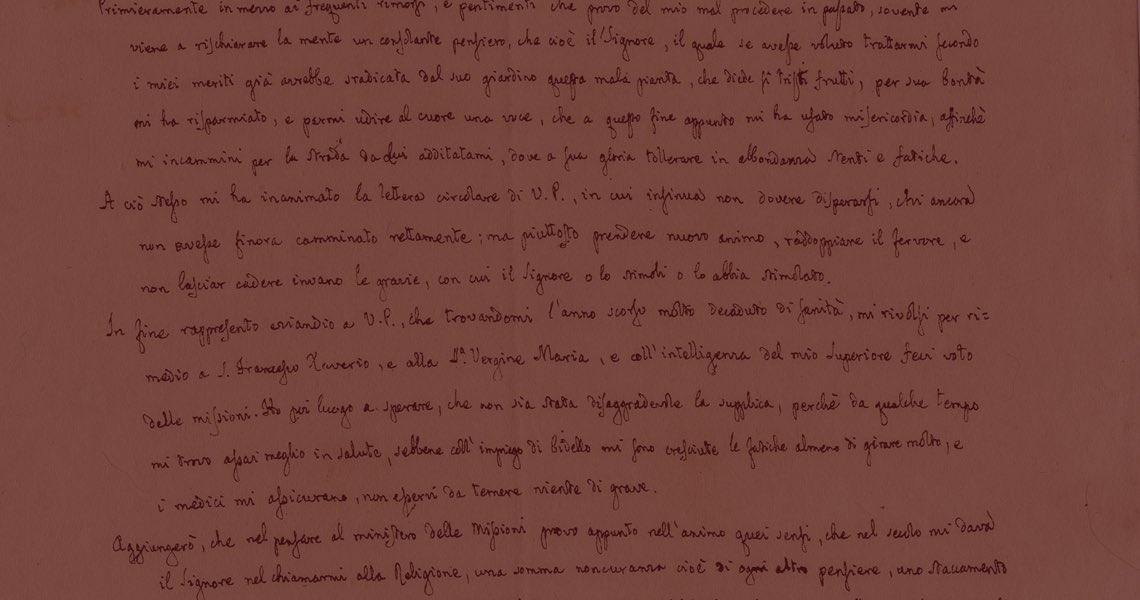 Primieramente in mezzo ai frequenti rimorsi, e pentimenti che provo del mio mal procedere in passato, sovente mi
viene a rischiarare la mente un consolante pensiero, che cioè il Signore, il quale se avesse voluto trattarmi secondo
i miei meriti già avrebbe sradicata dal suo giardino questa mala pianta, che diede sì tristi frutti, per sua bontà
mi ha risparmiato, e parmi udire al cuore una voce, che a questo fine appunto mi ha usato misericordia, affinchè
mi incammini per la strada da Lui additatami, dove a sua gloria tollerare in abbondanza stenti e fatiche.
A ciò stesso mi ha inanimato la lettera circolare di V. P., in cui insinua non dovere disperarsi, chi ancora
non avesse finora camminato rettamente; ma piuttosto prendere nuovo animo, raddoppiare il fervore, e
non lasciar cadere invano le grazie, con cui il Signore o lo stimoli o lo abbia stimolato.
In fine rappresento eziandio a V. P., che trovandomi l'anno scorso molto decaduto di sanità, mi rivolsi per ri=
medio a S. Francesco Xaverio, e alla SS.a Vergine Maria, e coll'intelligenza del mio Superiore feci voto
delle missioni. Ho poi luogo a sperare, che non sia stata disaggradevole la supplica, perchè da qualche tempo
mi trovo assai meglio in salute, sebbene coll'impiego di Bidello mi sono cresciute le fatiche almeno di girare molto, e
i medici mi assicurano, non esservi da temere niente di grave.
Aggiungerò, che nel pensare al ministero delle Missioni provo appunto nell'animo quei sensi, che nel secolo mi dava
il Signore nel chiamarmi alla Religione, una somma noncuranza cioè di ogni altro pensiere, uno staccamento